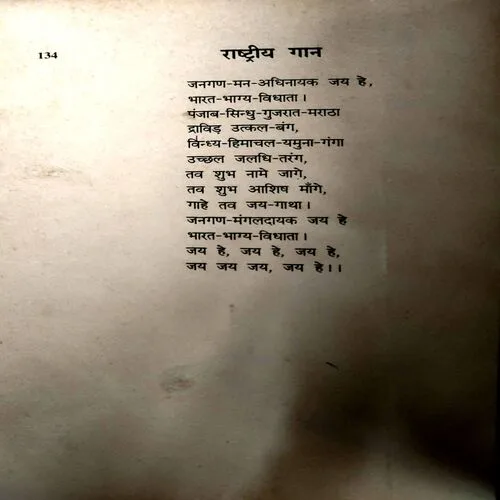 134
राष्ट्रीय गान
जनगण-मन-अधिनायक जय हे,
भारत-भाग्य-विधाता।
पंजाब-सिन्धु-गुजरात-मराठा
द्राविड़ उत्कल-बंग,
विन्ध्य-हिमाचल-यमुना-गंगा
उच्छल जलधि-तरंग,
तव शुभ नामे जागे,
तव शुभ आशिष माँगे,
गाहे तव जय-गाथा।
जनगण-मंगलदायक जय हे
भारत-भाग्य-विधाता।
जय हे, जय हे, जय हे,
जय जय जय, जय हे।।